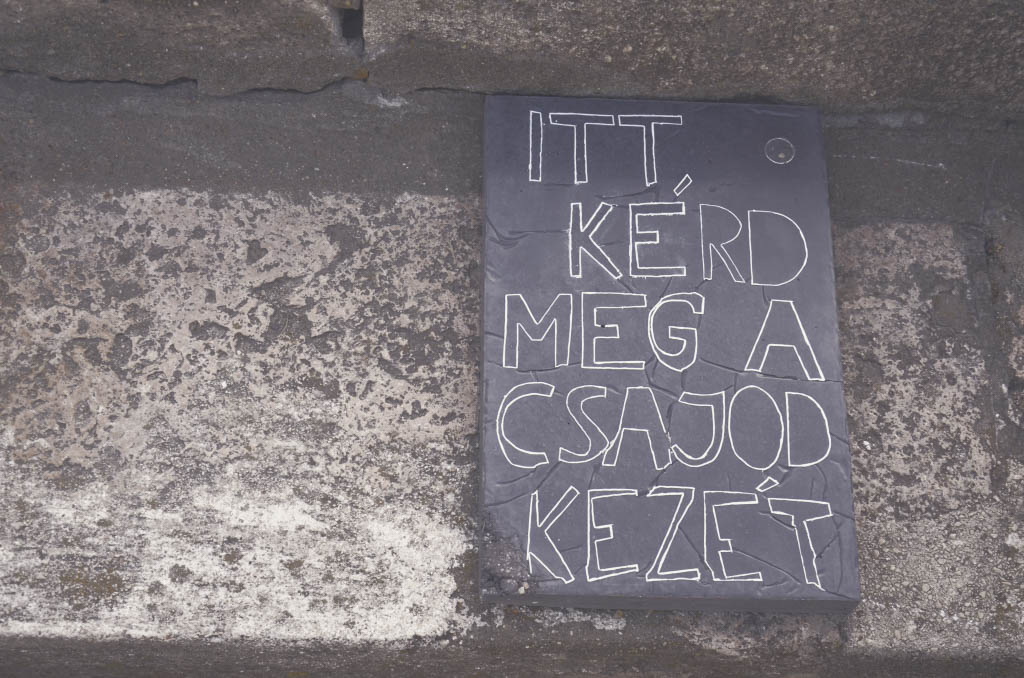 ITT
KÉRD
MEG A
CSAJOD
KEZÉT